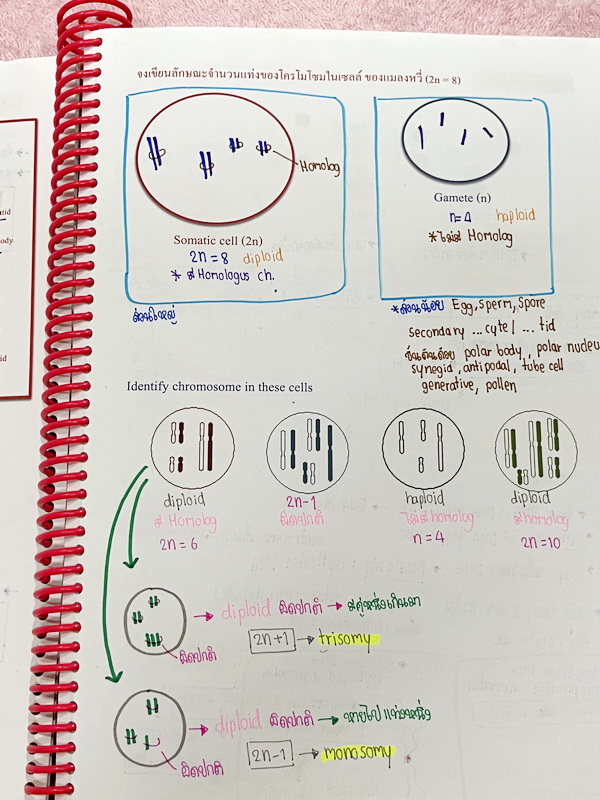 จงเขียนลักษณะจำนวนแท่งของโครโมโซมในเซลล์ ของแมลงหวี่ (2n = 8)
Homolog
Somatic cell (2n)
2n = 8 diploid
* มี Homologus ch.
ส่วนใหญ่
Gamete (n)
n = 4 haploid
* ไม่มี Homolog
*ส่วนน้อย Egg, Sperm, Spore
secondary ... cyte / ... tid
polar body, polar nucleu
synegid, antipodal, tube cell
generative, pollen
tid
ody
id
Identify chromosome in these cells
diploid
มี Homolog
2n = 6
2n-1
ผิดปกติ
haploid
ไม่มี homolog
n = 4
diploid
มี homolog
2n = 10
→ diploid ผิดปกติ → มีคู่หนึ่งเกินมา
2n+1 → trisomy
ผิดปกติ
→ diploid ผิดปกติ → หายไป แท่งหนึ่ง
2n-1 → monosomy
ผิดปกติ